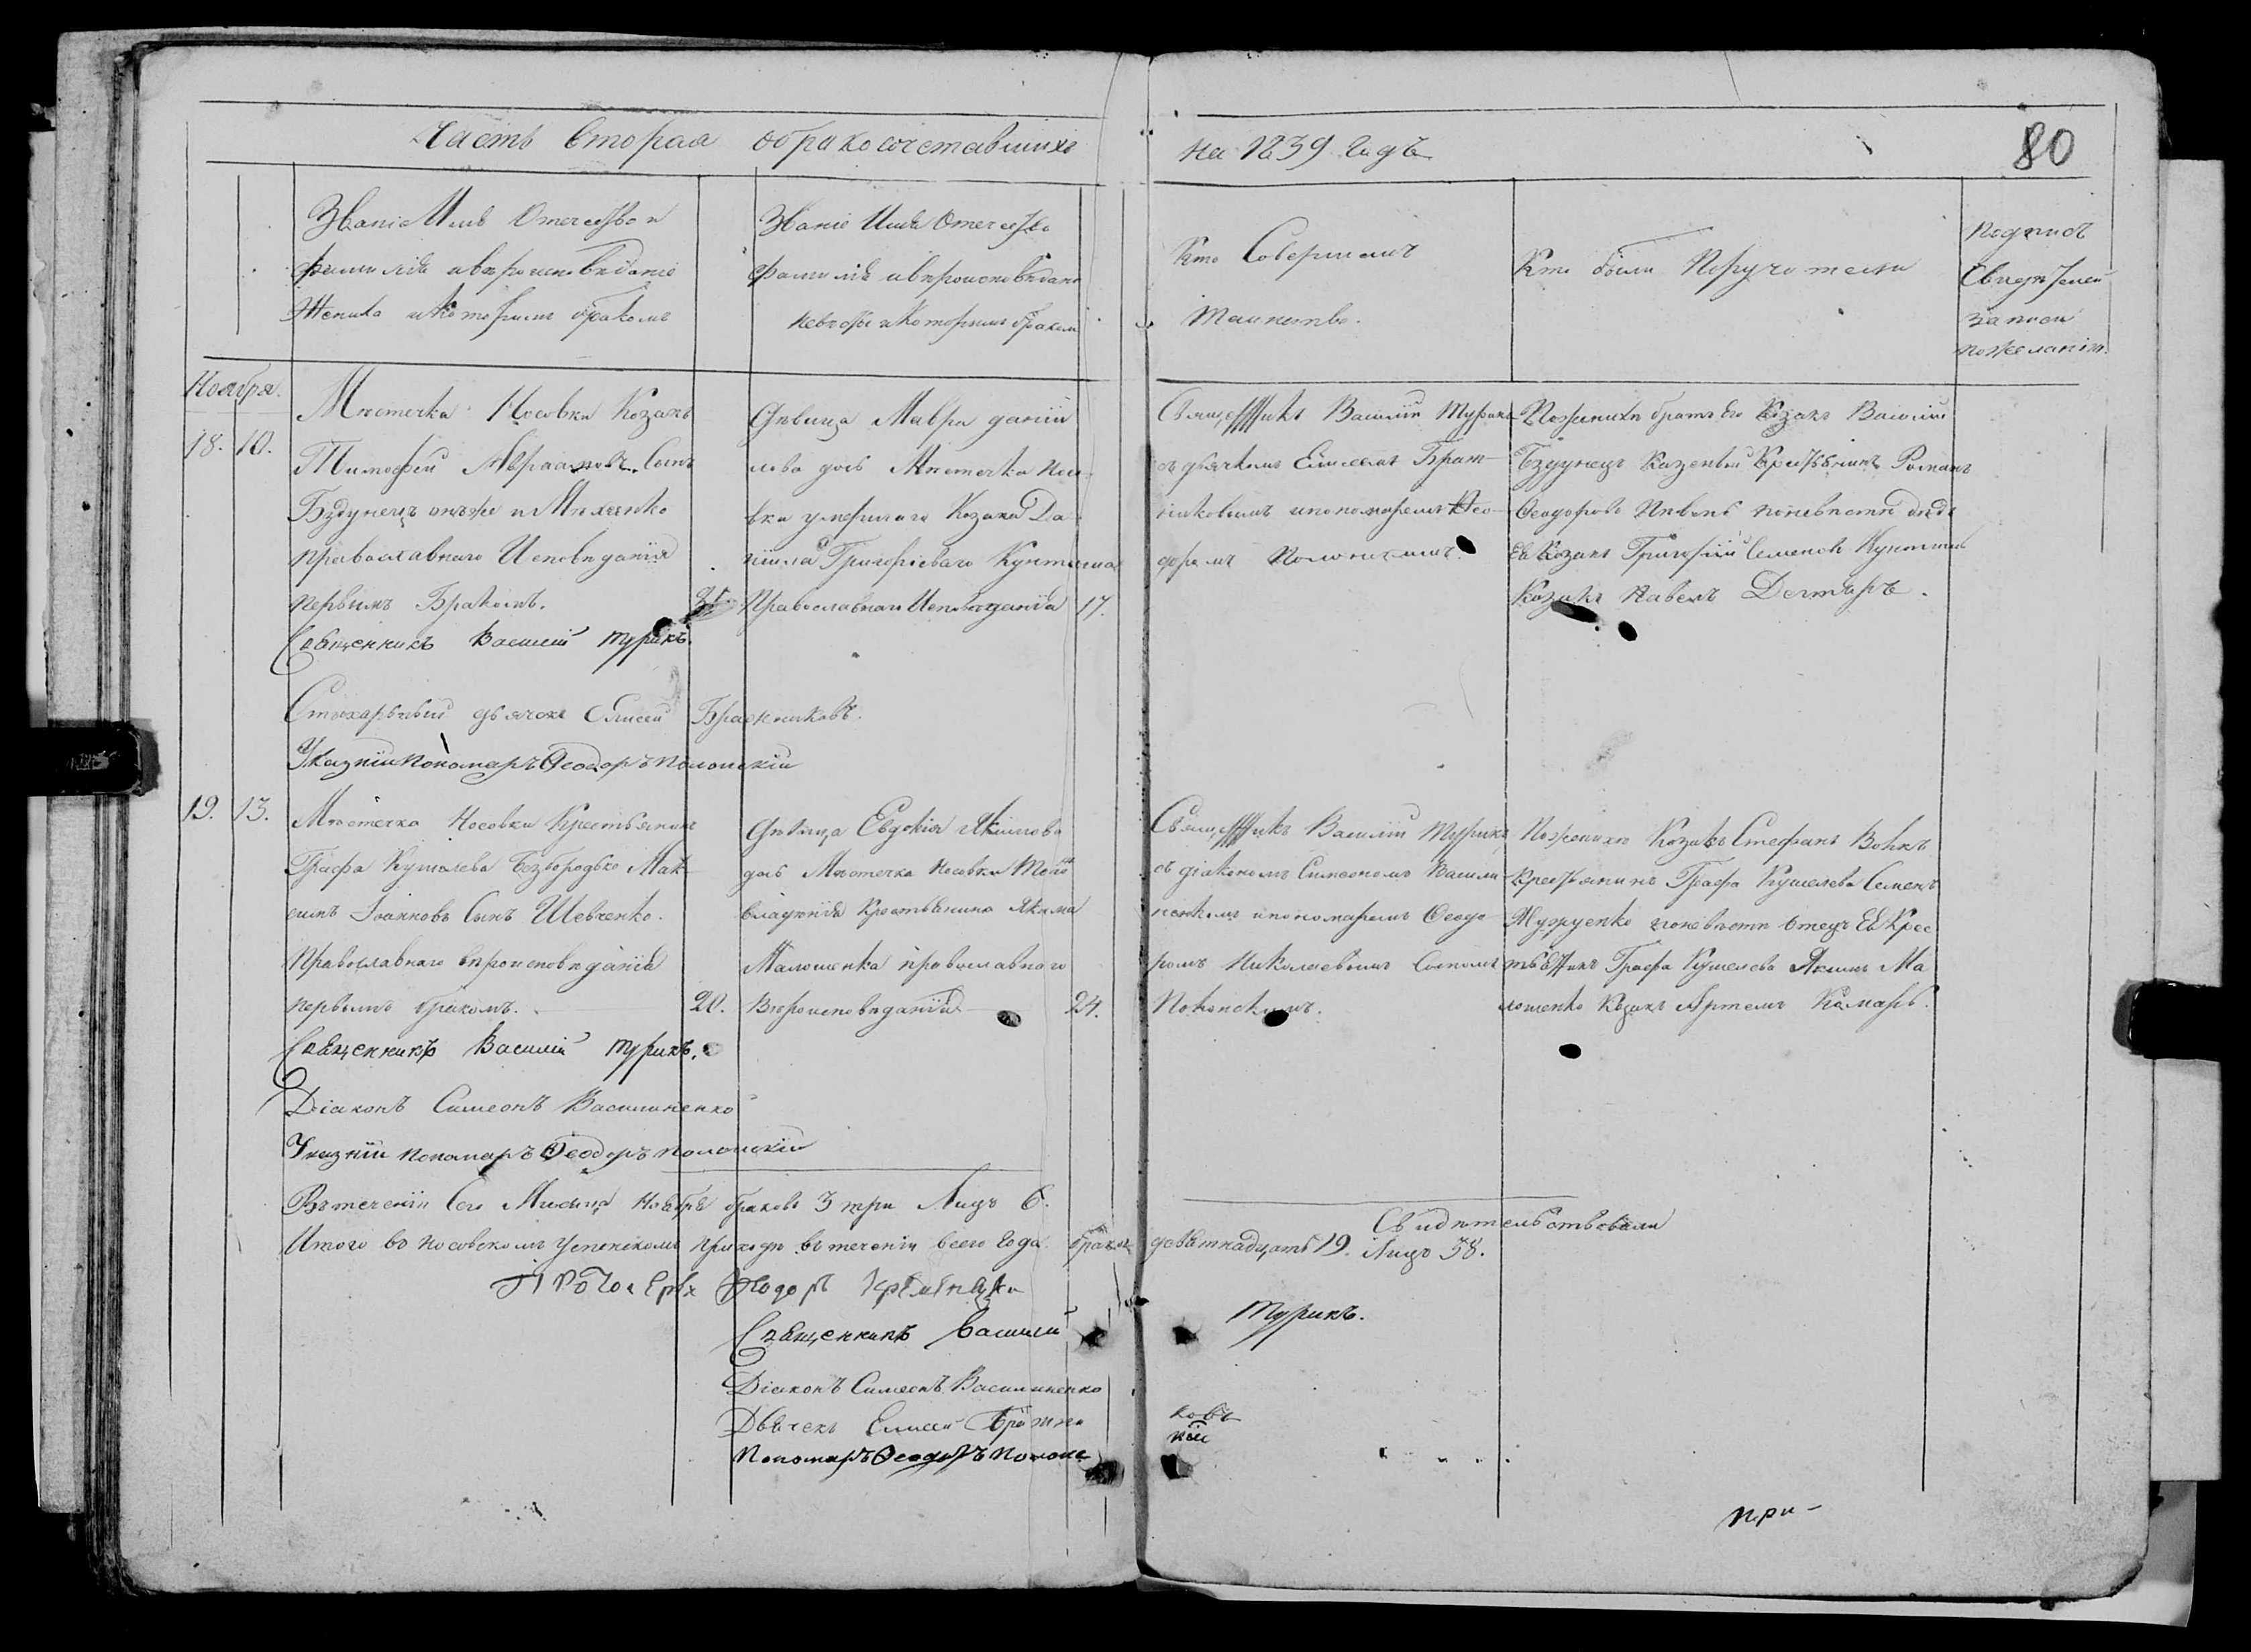 Часть вторая о бракосочетавшихся
на 1839 годъ
80
Званіе Имя Отчество и
фамилія и вѣроисповѣданіе
Жениха и которымъ бракомъ
Званіе Имя Отечество
фамилія и вѣроисповѣданіе
невѣсты и которымъ бракомъ
Кто Совершалъ
Таинство.
Кто были Поручители
Подписъ
Свидѣтелей
записи
по желанію.
Ноября.
18. 10.
Мѣстечка Носовки Козакъ
Тимофей Авраамовъ Сынъ
Бздунецъ онъ же и Михѣенко
православнаго Исповѣданія
первымъ Бракомъ.
31.
Дѣвица Мавра Даніи
лова дочь Мѣстечка Носо-
вки умершаго Козака Да-
ніила Григоріеваго
Православнаго Исповѣданія
17.
Священникъ Василій Турикъ
съ дьячкомъ Елисеемъ Брат-
никовымъ и пономаремъ Ѳео-
доромъ Полонскимъ.
По женихѣ братъ его Козакъ Василій
Бздунецъ Казенный Крестьянинъ Романъ
Ѳеодоровъ по невѣстѣ дядя
Ея Козакъ Григорій Семеновъ
Козакъ Павелъ Дегтяръ.
Священникъ Василій Турикъ.
Стихарный дьячокъ Елисей Братниковъ.
Указній Пономаръ Ѳеодоръ Полонскій
19. 13.
Мѣстечка Носовки Крестьянинъ
Графа Кушелева Безбородько Мак-
симъ Іоанновъ Сынъ Шевченко.
Православнаго вѣроисповѣданія
первымъ бракомъ.
20.
Дѣвица Евдокія Якимова
дочь Мѣстечка Носовки Того
владѣнія Крестьянина Якима
Малошенка православнаго
Вѣроисповѣданія
24.
Священникъ Василій Турикъ
съ діакономъ Симеономъ Васили-
ненкомъ и пономаремъ Ѳеодо-
ромъ Николаевымъ Сыномъ
Полонскимъ.
По женихѣ Козакъ Стефанъ Вовкъ
Крестьянинъ Графа Кушелева Семенъ
по невѣстѣ отецъ Ея Крес
тьянинъ Графа Кушелева Якимъ Ма
лошенко Козакъ Артемъ Комаръ.
Священникъ Василій Турикъ.
Діаконъ Симеонъ Василиненко
Указній Пономаръ Ѳеодоръ Полонскій
Въ теченіи Сего Мѣсяца Ноября браковъ 3 три Лицъ 6.
Итого въ Носовскомъ Успенскомъ приходѣ въ теченіи всего Года браковъ девятнадцать 19. Лицъ 38.
Свидѣтельствовали
Протоіерей Ѳеодоръ
Священникъ Василій Турикъ.
Діаконъ Симеонъ Василиненко
Дьячекъ Елисей Братниковъ
Пономаръ Ѳеодоръ Полонскій
при-